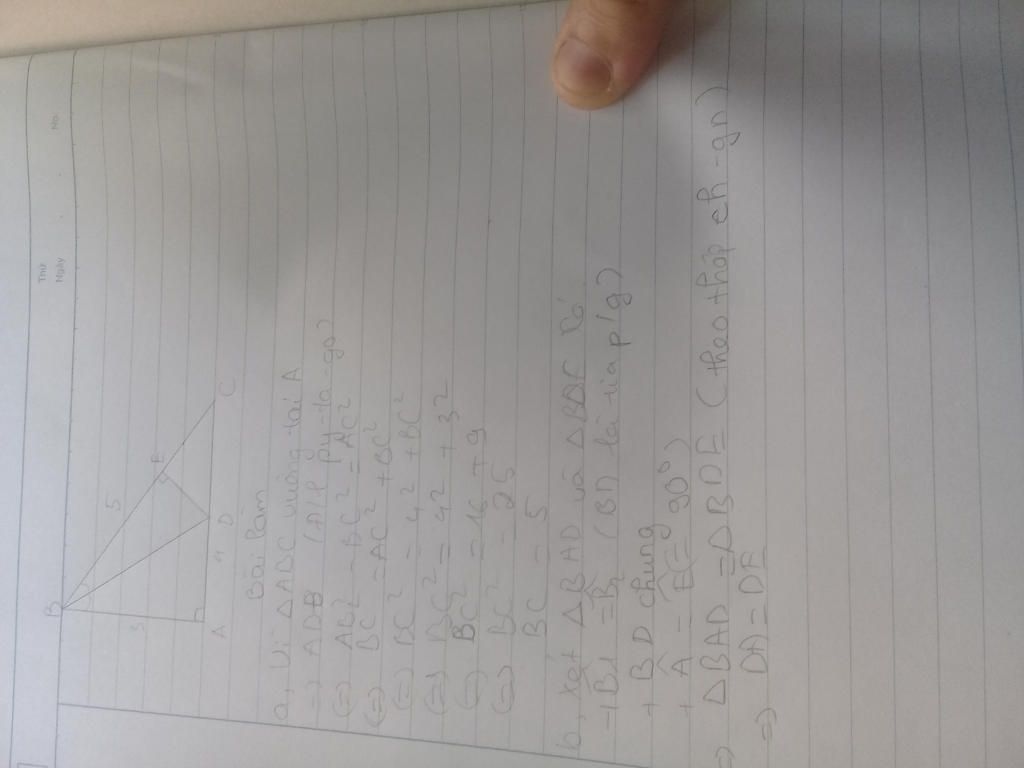 Thứ
Ngày
No.
B
5
E
3
A
4
D
C
Bài làm
a, Vì △ABC vuông tại A
=) ADB (A/P Py-ta-go)
(=) AB² - BC² = AC²
(=) BC² = AC² + BC²
(=) BC² = 4² + BC²
(=) BC² = 4² + 3²
(=) BC² = 16 + 9
(=) BC² = 25
BC = 5
b, xét △BAD và △BDE Có
B1 = B2 (BD là tia p/g)
+ BD chung
+ Â = = 90°)
=) △BAD = △BDE (theo thợp ch-gn)
=) DA = DE